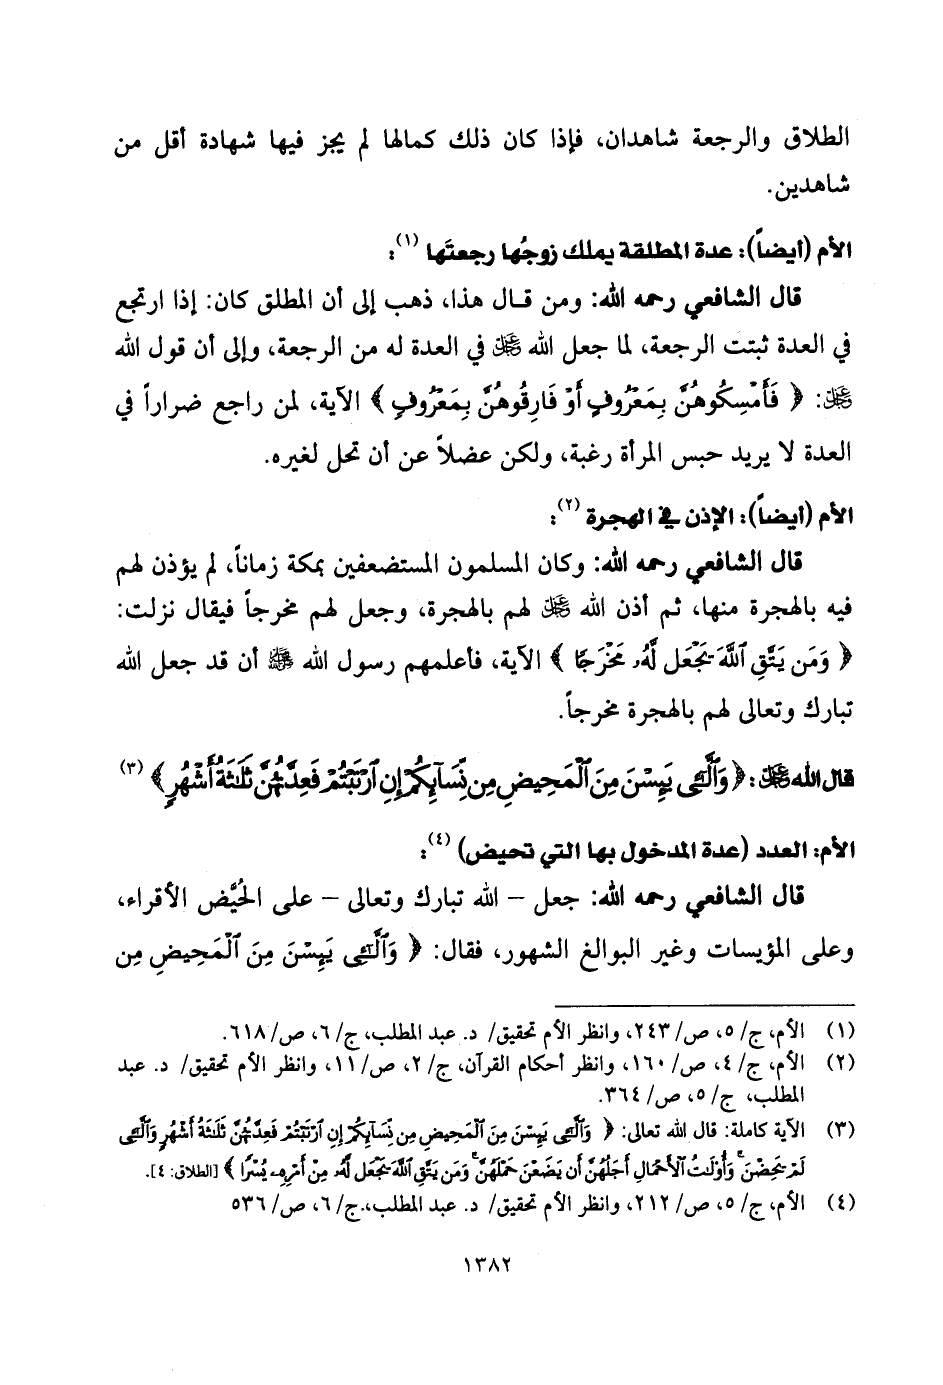 الطلاق والرجعة شاهدان، فإذا كان ذلك كمالها لم يجز فيها شهادة أقل من
شاهدين.
الأم (أيضاً): عدة المطلقة يملك زوجُها رجعتَها (١):
قال الشافعي رحمه الله: ومن قال هذا، ذهب إلى أن المطلق كان: إذا ارتجع
في العدة ثبتت الرجعة، لما جعل الله ﷻ في العدة له من الرجعة، وإلى أن قول الله
ﷻ: ﴿ فَأَمْسِكُوهُنَّ بِمَعْرُوفٍ أَوْ فَارِقُوهُنَّ بِمَعْرُوفٍ ﴾ الآية، لمن راجع ضراراً في
العدة لا يريد حبس المرأة رغبة، ولكن عضلاً عن أن تحل لغيره.
الأم (أيضاً): الإذن في الهجرة (٢):
قال الشافعي رحمه الله: وكان المسلمون المستضعفين بمكة زماناً، لم يؤذن لهم
فيه بالهجرة منها، ثم أذن الله ﷻ لهم بالهجرة، وجعل لهم مخرجاً فيقال نزلت:
﴿ وَمَن يَتَّقِ ٱللَّهَ يَجْعَل لَّهُۥ مَخْرَجًا ﴾ الآية، فأعلمهم رسول الله ﷺ أن قد جعل الله
تبارك وتعالى لهم بالهجرة مخرجاً.
قال الله ﷻ: ﴿ وَٱلَّٰٓـِٔى يَئِسْنَ مِنَ ٱلْمَحِيضِ مِن نِّسَآئِكُمْ إِنِ ٱرْتَبْتُمْ فَعِدَّتُهُنَّ ثَلَٰثَةُ أَشْهُرٍ ﴾ (٣)
الأم: العدد (عدة المدخول بها التي تحيض) (٤):
قال الشافعي رحمه الله: جعل – الله تبارك وتعالى – على الحُيَّض الأقراء،
وعلى المؤيسات وغير البوالغ الشهور، فقال: ﴿ وَٱلَّٰٓـِٔى يَئِسْنَ مِنَ ٱلْمَحِيضِ مِن
(١) الأم، ج/ ٥، ص/ ٢٤٣، وانظر الأم تحقيق/ د. عبد المطلب، ج/ ٦، ص/ ٦١٨.
(٢) الأم، ج/ ٤، ص/ ١٦٠، وانظر أحكام القرآن، ج/ ٢، ص/ ١١، وانظر الأم تحقيق/ د. عبد
المطلب، ج/ ٥، ص/ ٣٦٤.
(٣) الآية كاملة: قال الله تعالى: ﴿ وَٱلَّٰٓـِٔى يَئِسْنَ مِنَ ٱلْمَحِيضِ مِن نِّسَآئِكُمْ إِنِ ٱرْتَبْتُمْ فَعِدَّتُهُنَّ ثَلَٰثَةُ أَشْهُرٍ وَٱلَّٰٓـِٔى
لَمْ يَحِضْنَ ۚ وَأُو۟لَٰتُ ٱلْأَحْمَالِ أَجَلُهُنَّ أَن يَضَعْنَ حَمْلَهُنَّ ۚ وَمَن يَتَّقِ ٱللَّهَ يَجْعَل لَّهُۥ مِنْ أَمْرِهِۦ يُسْرًا ﴾ [الطلاق: ٤].
(٤) الأم، ج/ ٥، ص/ ٢١٢، وانظر الأم تحقيق/ د. عبد المطلب،.ج/ ٦، ص/ ٥٣٦
١٣٨٢